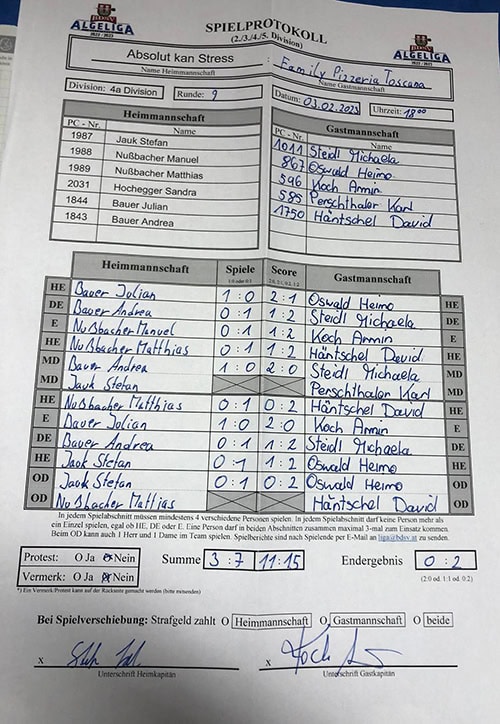 BDSV
ALGELIGA
2022 / 2023
SPIELPROTOKOLL
(2./3./4./5. Division)
BDSV
ALGELIGA
2022 / 2023
Absolut kan Stress : Family Pizzeria Toscana
Name Heimmannschaft Name Gastmannschaft
Division: 4a Division Runde: 9 Datum: 03.02.2023 Uhrzeit: 18 00
Heimmannschaft Gastmannschaft
PC - Nr. Name PC - Nr. Name
1987 Jauk Stefan 1011 Steidl Michaela
1988 Nußbacher Manuel 867 Oswald Heimo
1989 Nußbacher Matthias 596 Koch Armin
2031 Hochegger Sandra 585 Perschthaler Karl
1844 Bauer Julian 1750 Häntschel David
1843 Bauer Andrea
Heimmannschaft Spiele Score Gastmannschaft
HE Bauer Julian 1 : 0 2 : 1 Oswald Heimo HE
DE Bauer Andrea 0 : 1 1 : 2 Steidl Michaela DE
E Nußbacher Manuel 0 : 1 1 : 2 Koch Armin E
HE Nußbacher Matthias 0 : 1 1 : 2 Häntschel David HE
MD Bauer Andrea 1 : 0 2 : 0 Steidl Michaela MD
MD Jauk Stefan Perschthaler Karl MD
HE Nußbacher Matthias 0 : 1 0 : 2 Häntschel David HE
E Bauer Julian 1 : 0 2 : 0 Koch Armin E
DE Bauer Andrea 0 : 1 1 : 2 Steidl Michaela DE
HE Jauk Stefan 0 : 1 1 : 2 Oswald Heimo HE
OD Jauk Stefan 0 : 1 0 : 2 Oswald Heimo OD
OD Nußbacher Mattias Häntschel David OD
In jedem Spielabschnitt müssen mindestens 4 verschiedene Personen spielen. In jedem Spielabschnitt darf keine Person mehr als
ein Einzel spielen, egal ob HE, DE oder E. Eine Person darf in beiden Abschnitten zusammen maximal 3-mal zum Einsatz kommen.
Beim OD kann auch 1 Herr und 1 Dame im Team spielen. Spielberichte sind nach Spielende per E-Mail an liga@bdsv.at zu senden.
Protest: O Ja O Nein Summe 3 : 7 11 : 15 Endergebnis 0 : 2
Vermerk: O Ja O Nein (2:0 od. 1:1 od. 0:2)
*) Ein Vermerk/Protest kann auf der Rückseite gemacht werden (bitte ankreuzen)
Bei Spielverschiebung: Strafgeld zahlt O Heimmannschaft O Gastmannschaft O beide
x x
Unterschrift Heimkapitän Unterschrift Gastkapitän